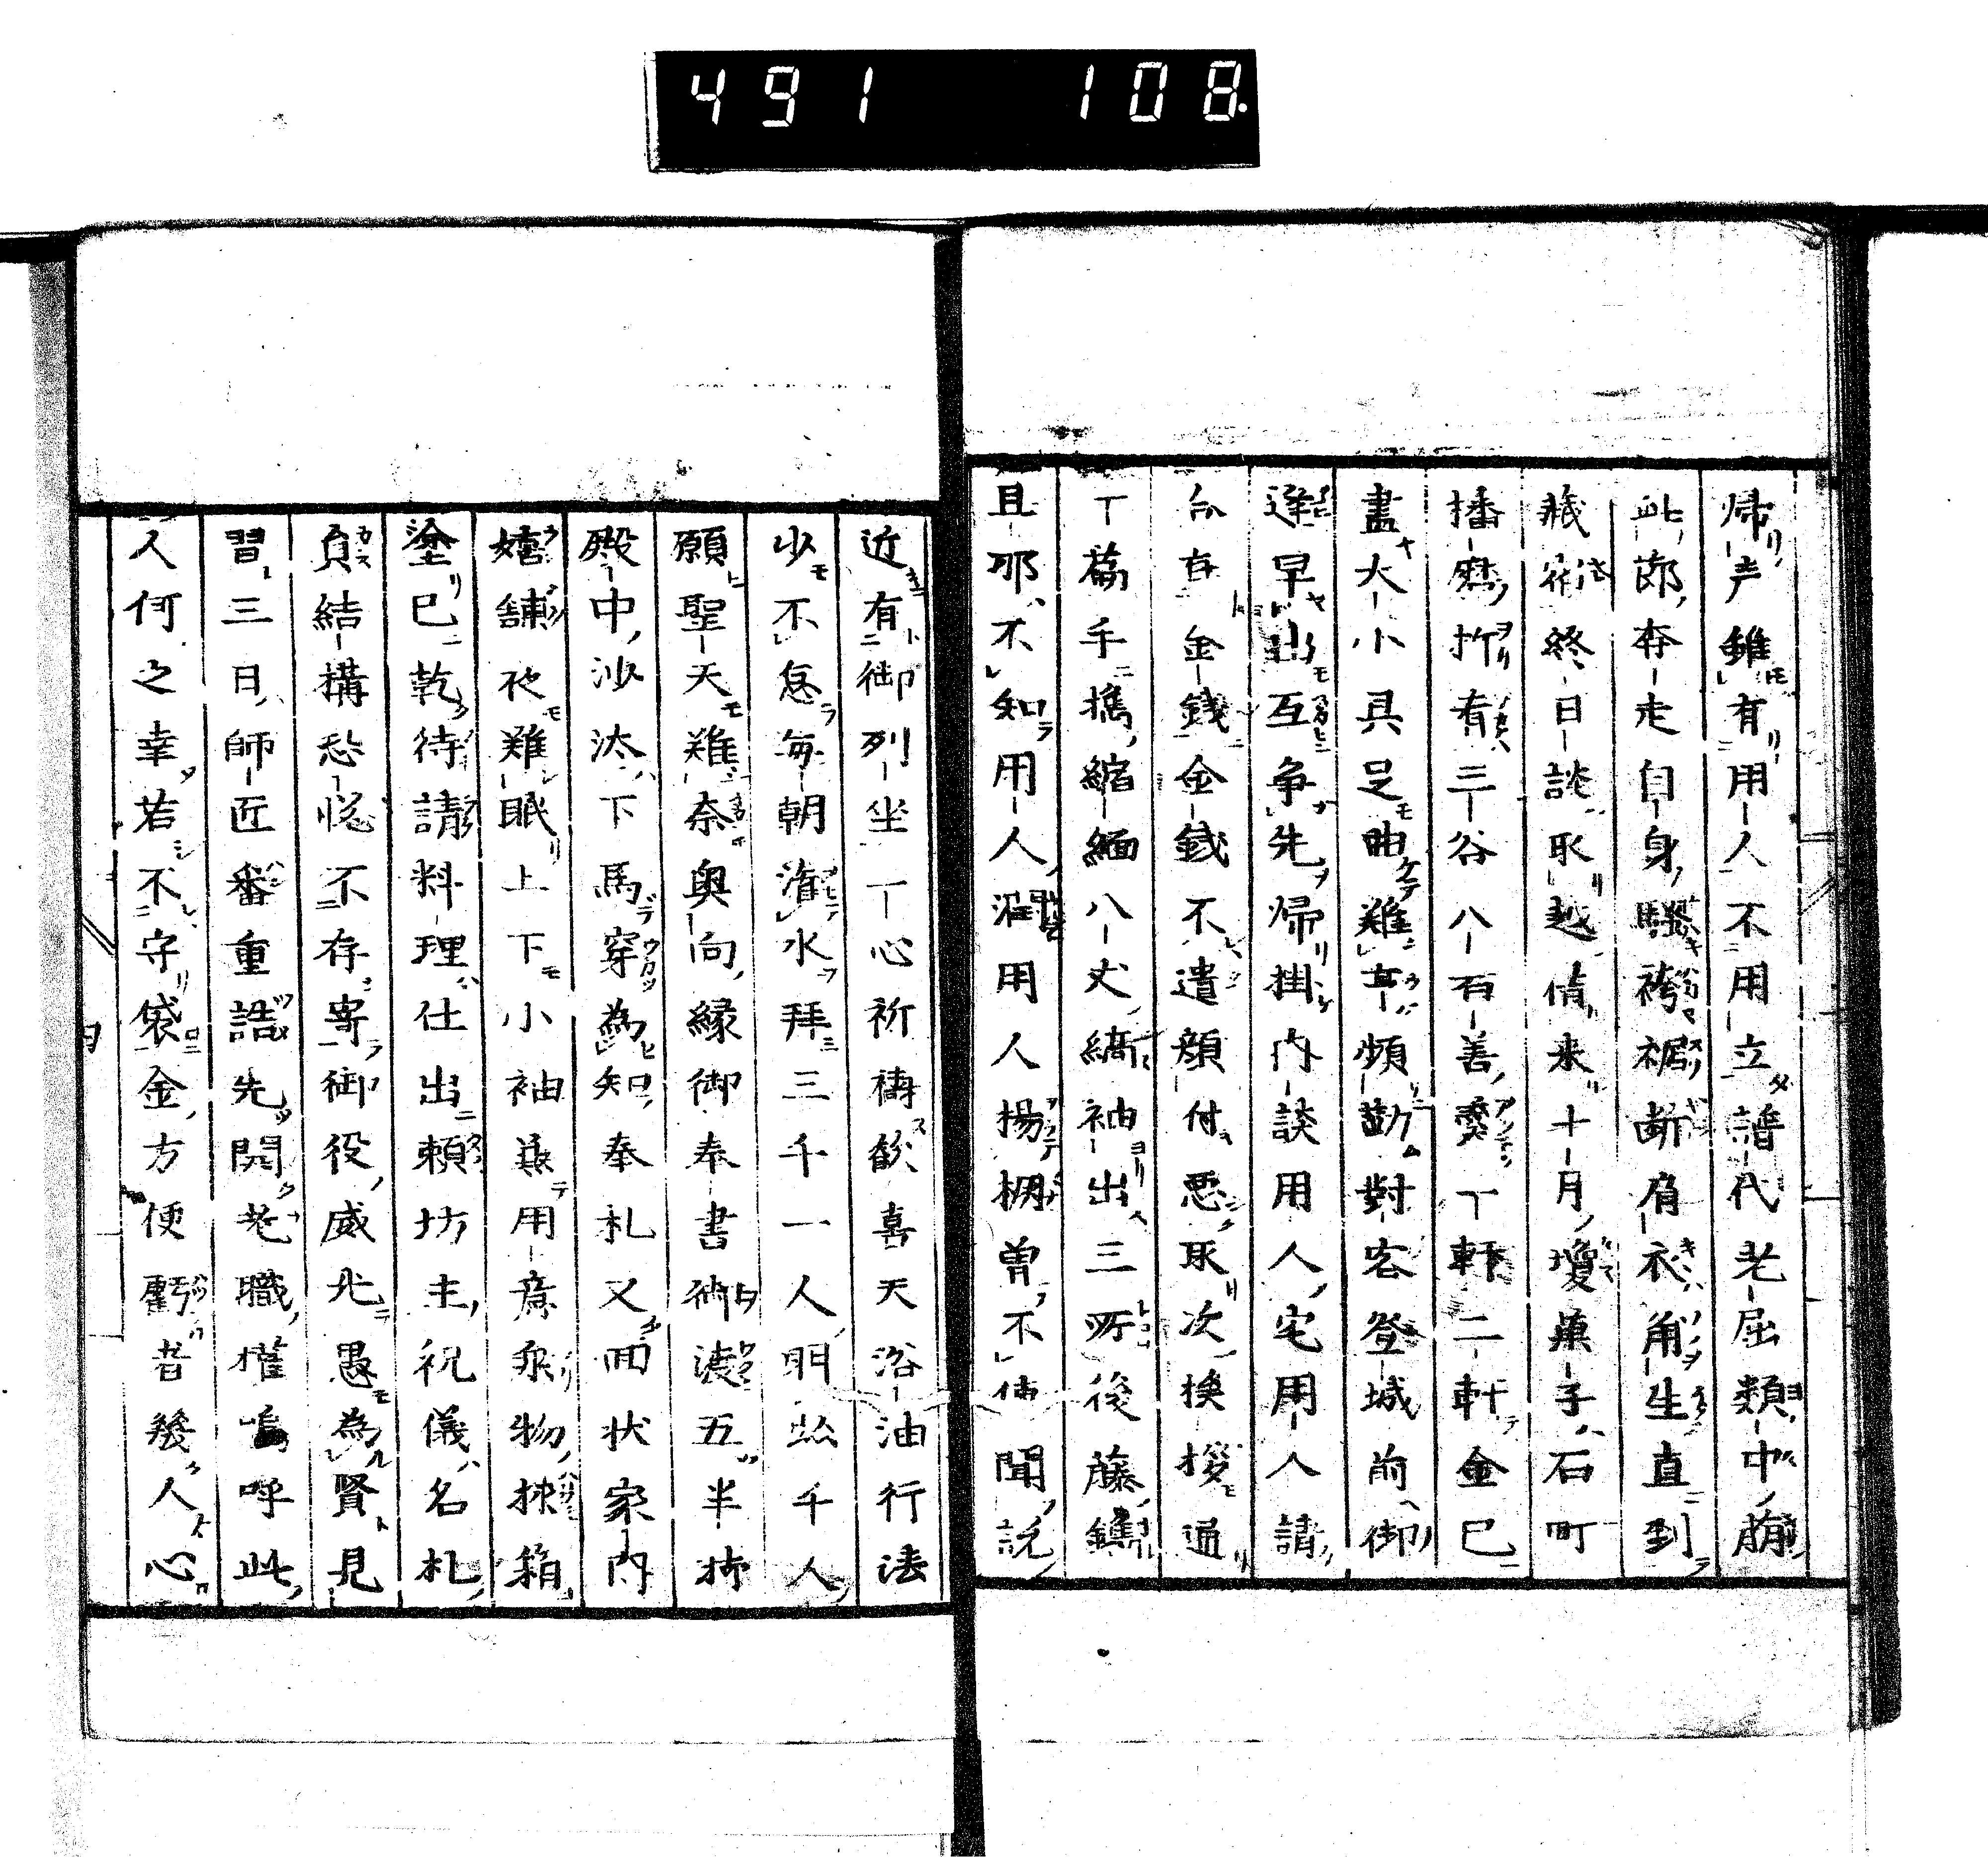 491 108
帰声雖有用人不用立譜代老屈類中痛
此節奔走自身騒袴裾断肩衣角生直到
蔵宿終日談取越借来十月煖菓子石町
播磨折有三谷八百善奚丁軒二軒金已
盡大小具足曲難 頻勤對客登城前御
逢早出互争先帰掛内談用人宅用人請
台有金銭金銭不遣顔付悪取次挨拶通
丁寧手携縮緬八丈縞袖出三所後藤鐫
且那不知用人泥用人揚棚曽不備聞説
近有御列坐丁心祈禱歓喜天浴油行法
少不怠毎朝潅水拝三千一人明 千人
願聖天難奈輿向縁御奉書御濃五半切
殿中沙汰下馬穿為知奉札又回状家内
嬉舗夜難眠上下小袖兼用意乗物挟箱
塗已乾待請料理仕出頼坊主祝儀名札
負結構愁悦不存寄御役威光愚為賢見
習三日師匠番重詰先開老職權嗚呼此
人何之幸若不守袋金方便虧者幾人心